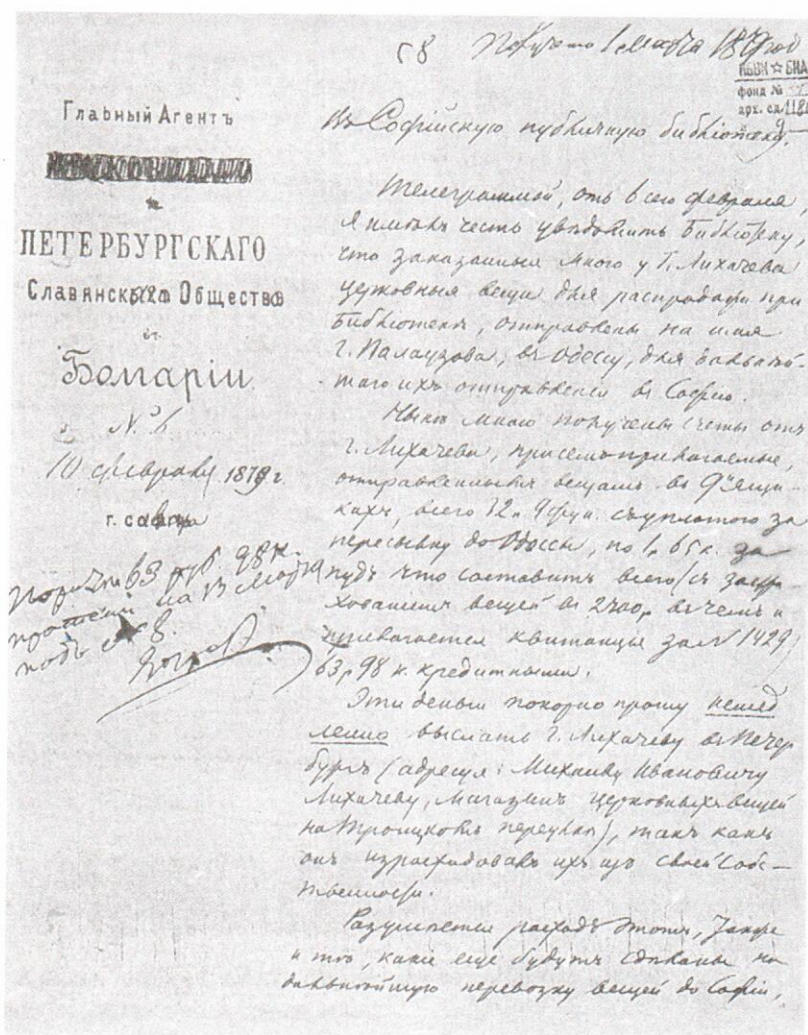 58 Получено 1 Марта 1879 год
НБКМ ☆ БИА
фонд №
арх. ед. 118
Главный Агентъ
ПЕТЕРБУРГСКАГО
Славянскаго Общества
въ
Болгаріи
№ 6
10 февраля 1879 г.
г. София
Въ Софійскую публичную библіотеку.
Телеграммой, отъ 8 сего февраля,
я имѣлъ честь увѣдомить Библіотеку,
что заказанныя мною у Г. Лихачева
церковныя вещи для распродажи при
Библіотекѣ, отправлены на имя
г. Палаузова, въ Одессу, для дальнѣй-
шаго ихъ отправленія въ Софію.
Нынѣ мною получены счеты отъ
г. Лихачева, при семъ прилагаемые,
отправленнымъ вещамъ въ 9 ящи-
кахъ, всего 32 п. 9 фун. съ уплатою за
пересылку до Одессы, по 1 р. 65 к. за
пудъ что составитъ всего съ застра-
хованіемъ вещей въ 2400 р. въ чемъ и
прилагается квитанція за № 1429,
63 р. 98 к. кредитными.
Эти деньги покорно прошу немед
ленно выслать г. Лихачеву въ Петер
бургъ (адресуя: Михаилу Ивановичу
Лихачеву, Магазинъ церковныхъ вещей
на Троицкомъ переулкѣ), такъ какъ
онъ израсходовалъ ихъ изъ своей соб-
ственности.
Разумѣется расходъ этотъ, также
и тѣ, какіе еще будутъ сдѣланы на
дальнѣйшую перевозку вещей до Софіи,
63 руб. 98 к.
на 13 Марта
подъ № 8.